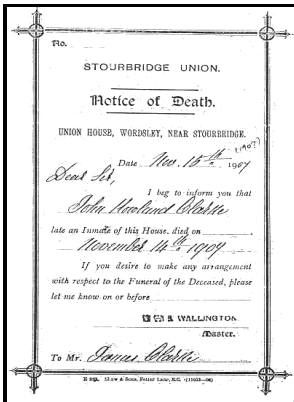 No.
STOURBRIDGE UNION.
Notice of Death.
UNION HOUSE, WORDSLEY, NEAR STOURBRIDGE.
(190?)
Date Nov. 15th 1907
Dear Sir,
I beg to inform you that
John Howland Clarke
late an Inmate of this House, died on
November 14th 1907
If you desire to make any arrangement
with respect to the Funeral of the Deceased, please
let me know on or before
WALLINGTON
Master.
To Mr. James Clarke
Shaw & Sons, Fetter Lane, E.C.